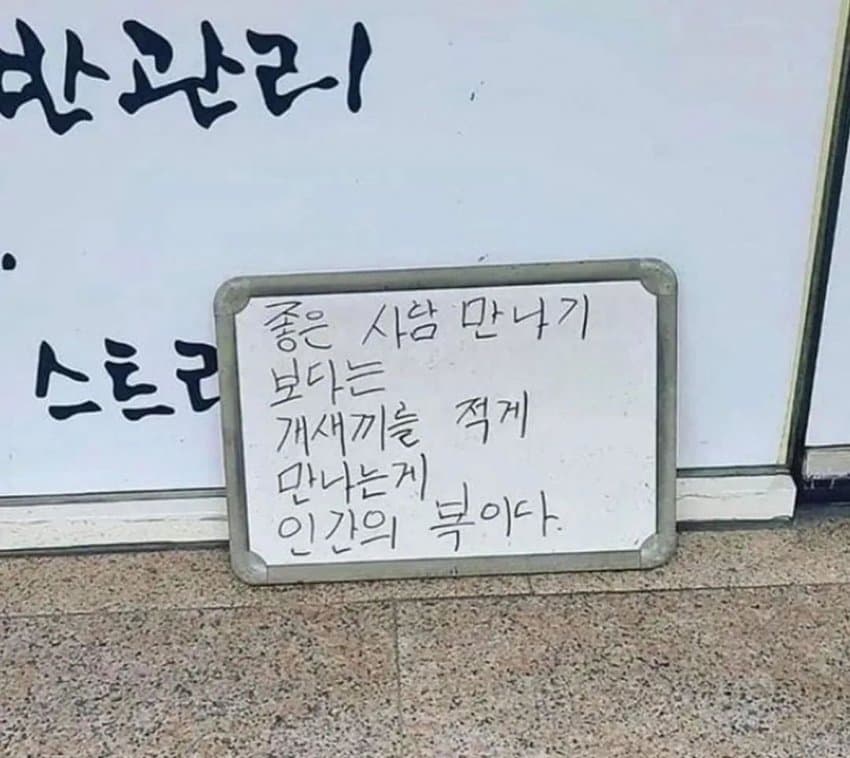 반관리
스트레
좋은 사람 만나기
보다는
개새끼를 적게
만나는게
인간의 복이다.